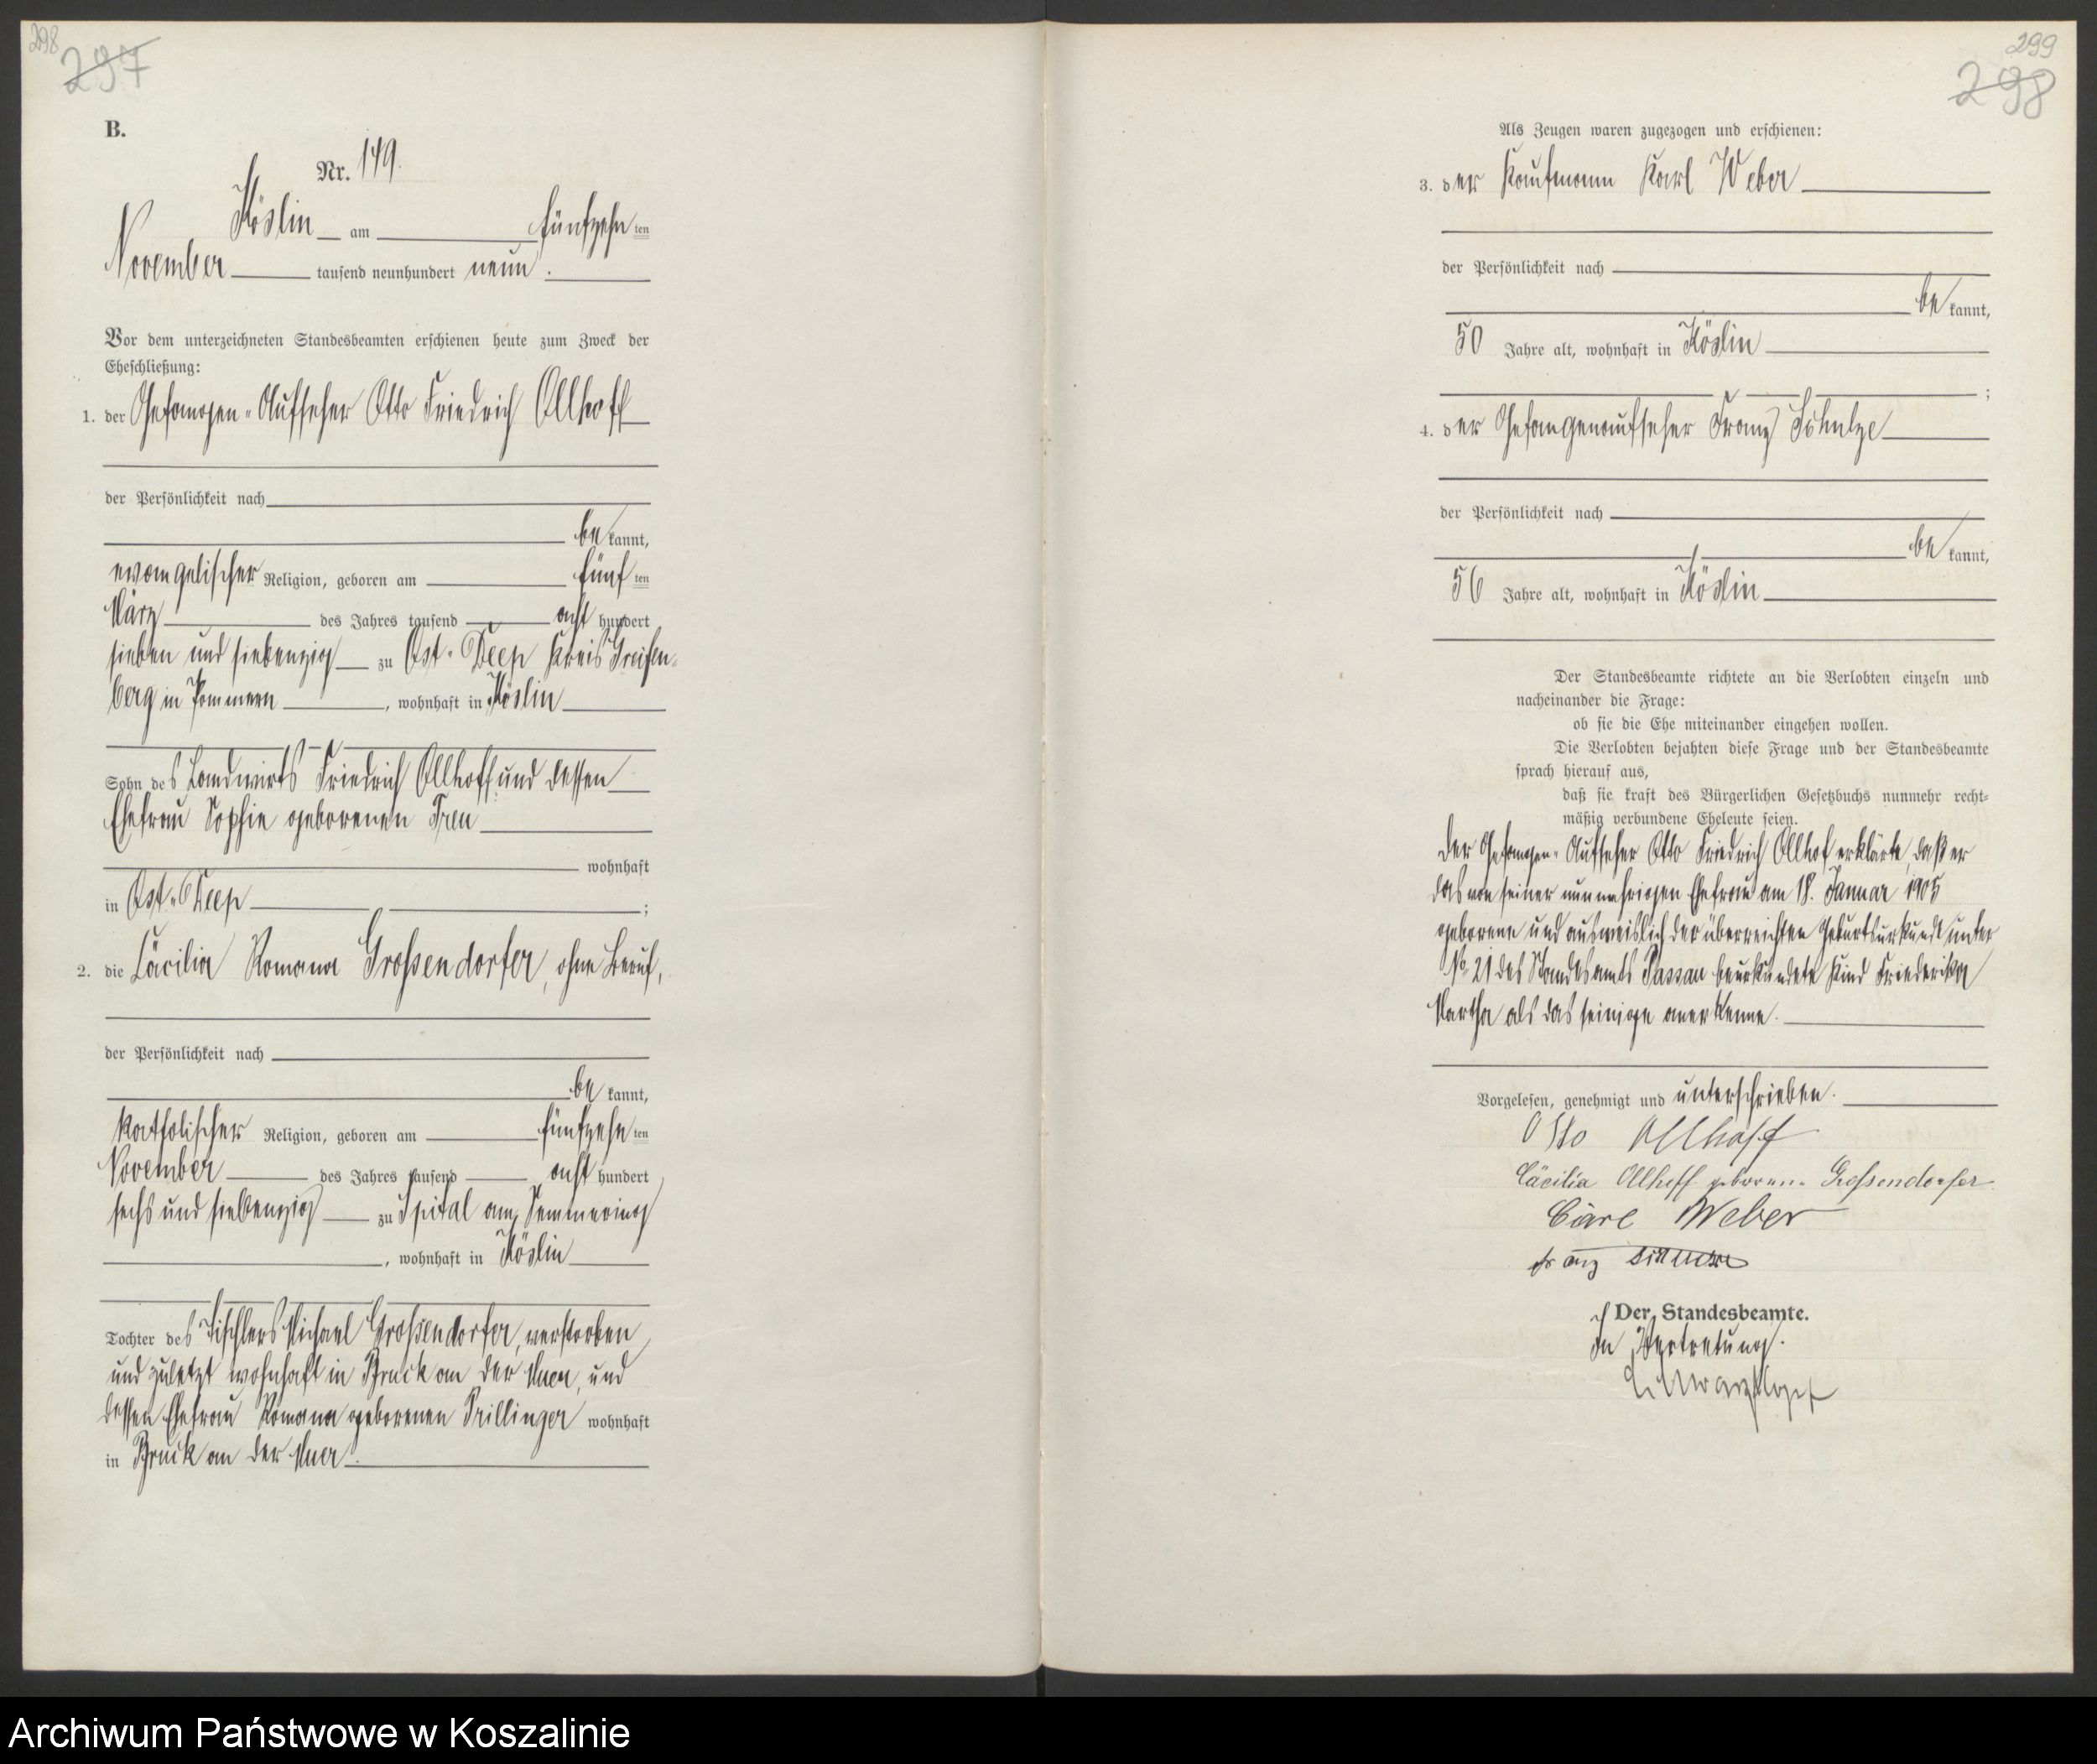 298
297
B.
Nr. 149.
Köslin am fünfzehn ten
November tausend neunhundert neun.
Vor dem unterzeichneten Standesbeamten erschienen heute zum Zweck der
Eheschließung:
1. der Gefangen-Aufseher Otto Friedrich Ollhoff
der Persönlichkeit nach
be kannt,
evangelischer Religion, geboren am fünf ten
März des Jahres tausend acht hundert
sieben und siebenzig zu Ost-Deep Kreis Greifen-
berg in Pommern, wohnhaft in Köslin
Sohn des Landwirts Friedrich Ollhoff und dessen
Ehefrau Sophie geborenen
wohnhaft
in Ost-Deep ;
2. die Cäcilia Romana Großendorfer, ohne Beruf,
der Persönlichkeit nach
be kannt,
katholischer Religion, geboren am fünfzehn ten
November des Jahres tausend acht hundert
sechs und siebenzig zu Spital am Semmering
, wohnhaft in Köslin
Tochter des Tischlers Michael Großendorfer, verstorben
und zuletzt wohnhaft in Bruck an der Muer, und
dessen Ehefrau Romana geborenen Prillinger wohnhaft
in Bruck an der Muer.
299
298
Als Zeugen waren zugezogen und erschienen:
3. der Kaufmann Karl Weber
der Persönlichkeit nach
be kannt,
50 Jahre alt, wohnhaft in Köslin
;
4. der Gefangenaufseher Franz Schulze
der Persönlichkeit nach
be kannt,
56 Jahre alt, wohnhaft in Köslin
Der Standesbeamte richtete an die Verlobten einzeln und
nacheinander die Frage:
ob sie die Ehe miteinander eingehen wollen.
Die Verlobten bejahten diese Frage und der Standesbeamte
sprach hierauf aus,
daß sie kraft des Bürgerlichen Gesetzbuchs nunmehr recht-
mäßig verbundene Eheleute seien.
Der Gefangen-Aufseher Otto Friedrich Ollhof erklärte, daß er
das von seiner nunmehrigen Ehefrau am 18. Januar 1905
geborene und ausweislich der überreichten Geburtsurkunde unter
No 21 des Standesamts Passau beurkundete Kind Friederika
Martha als das seinige anerkenne.
Vorgelesen, genehmigt und unterschrieben.
Otto Ollhoff
Cäcilia Ollhoff geborene Großendorfer
Carl Weber
Franz Schulze
Der Standesbeamte.
In Vertretung.
Archiwum Państwowe w Koszalinie